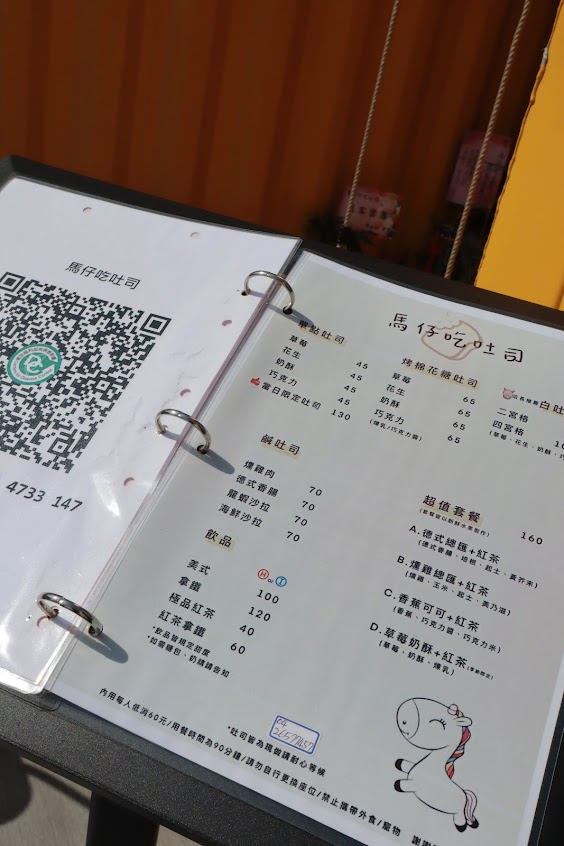 馬仔吃吐司
4733 147
馬仔吃吐司
單點吐司
草莓 45
花生 45
奶酥 45
巧克力 45
當日限定吐司 130
烤棉花糖吐司
草莓 65
花生 65
奶酥 65
巧克力 65
(煉乳/巧克力醬)
店長推薦 白吐
二宮格
四宮格
(草莓、花生、奶酥、巧
鹹吐司
燻雞肉 70
德式香腸 70
龍蝦沙拉 70
海鮮沙拉 70
飲品
H or I
美式 100
拿鐵 120
極品紅茶 40
紅茶拿鐵 60
*飲品皆規定甜度
*如需糖包、奶精請告知
超值套餐 160
(套餐皆以新鮮水果製作)
A.德式總匯+紅茶
(德式香腸、培根、起士、黃芥末)
B.燻雞總匯+紅茶
(燻雞、玉米、起士、美乃滋)
C.香蕉可可+紅茶
(香蕉、巧克力醬、巧克力米)
D.草莓奶酥+紅茶(季節限定)
(草莓、奶酥、煉乳)
*吐司皆為現做請耐心等候
內用每人低消60元/用餐時間為90分鐘/請勿自行更換座位/禁止攜帶外食/寵物 謝謝